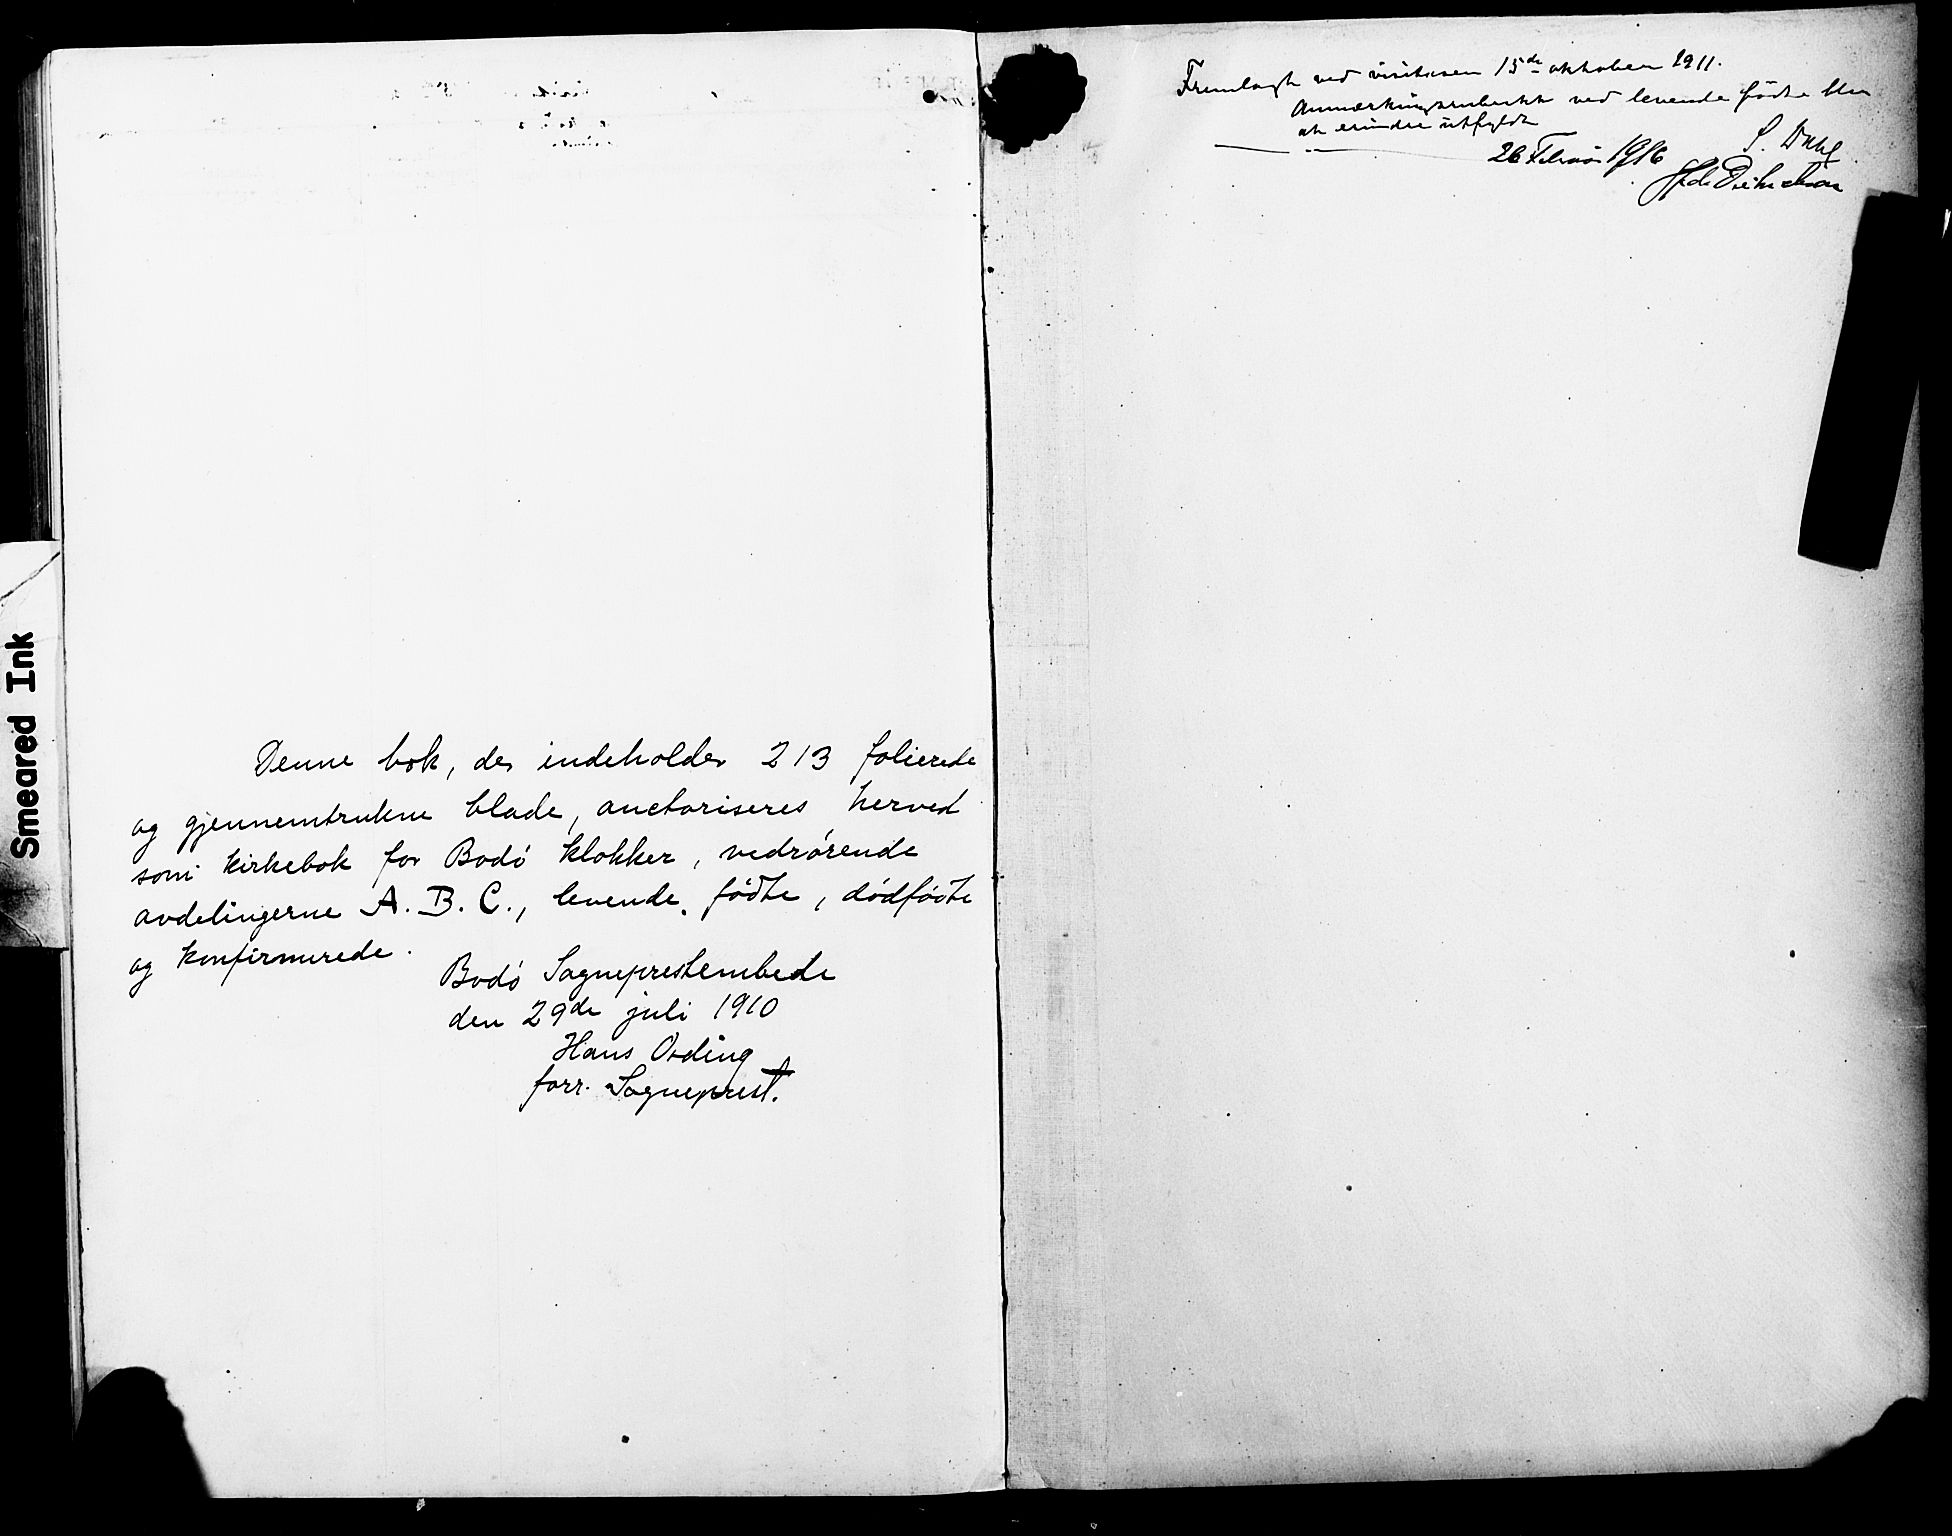 Denne bok, der indeholder 213 folierede
og gjennemtrukne blade, auctoriseres herved
som kirkebok for Bodó klokker, vedrørende
avdelingerne A. B. C., levende fødte, dødfødte
og konfirmerede.
Bodó Sogneprestembede
den 29de juli 1910
Hans Ording
forr. Sogneprest.
Fremlagt ved visitasen 15de oktober 1911.
Anmerkningsrubrikk ved levende fødte blir
at utfyldt
S. Dahl
26 Februar 1916
Smeared Ink